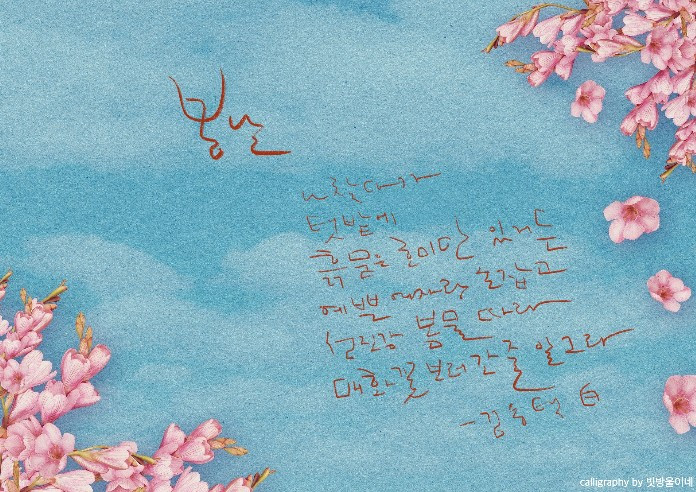 봄날
나 찾다가
텃밭에
흙 묻은 호미만 있거든
예쁜 여자랑 손잡고
섬진강 봄물 따라
매화꽃 보러 간 줄 알그라
-김용택 白
calligraphy by 빗방울이네